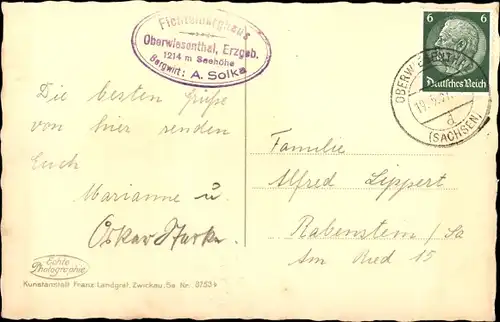 Fichtelberghaus
Oberwiesenthal, Erzgeb.
1214 m Seehöhe
Bergwirt: A. Solka
6 6
Deutsches Reich
OBERWIESENTHAL
d
(SACHSEN)
Die besten Grüße
von hier senden
Euch
Marianne u.
Oskar
Familie
Alfred Lippert
Rabenstein / Sa
Am Ried 15
Echte
Photographie
Kunstanstalt Franz Landgraf, Zwickau, Sa. Nr.